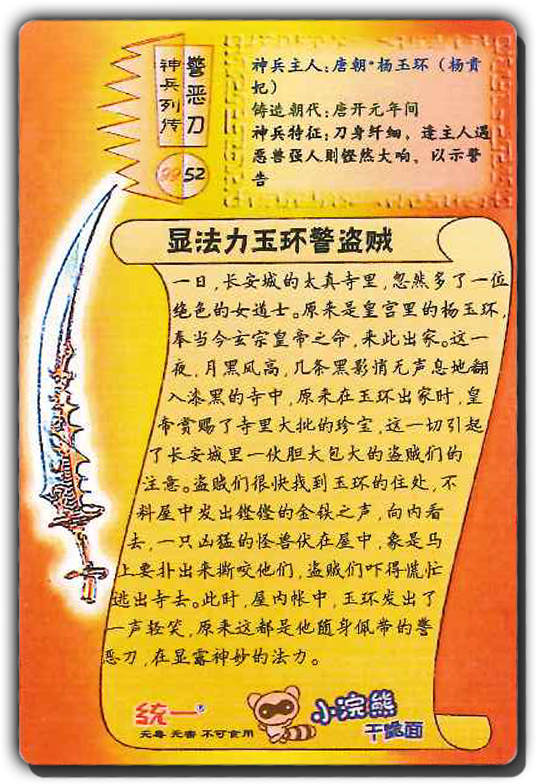 警恶刀
神兵列传
99 52
神兵主人：唐朝·杨玉环（杨贵
妃）
铸造朝代：唐开元年间
神兵特征：刀身纤细，逢主人遇
恶兽强人则铿然大响，以示警
告
显法力玉环警盗贼
一日，长安城的太真寺里，忽然多了一位
绝色的女道士。原来是皇宫里的杨玉环，
奉当今玄宗皇帝之命，来此出家。这一
夜，月黑风高，几条黑影悄无声息地翻
入漆黑的寺中，原来在玉环出家时，皇
帝赏赐了寺里大批的珍宝，这一切引起
了长安城里一伙胆大包天的盗贼们的
注意。盗贼们很快找到玉环的住处，不
料屋中发出铿铿的金铁之声，向内看
去，一只凶猛的怪兽伏在屋中，象是马
上要扑出来撕咬他们，盗贼们吓得慌忙
逃出寺去。此时，屋内帐中，玉环发出了
一声轻笑，原来这都是他随身佩带的警
恶刀，在显露神妙的法力。
统一®
小浣熊
干脆面
无毒 无害 不可食用